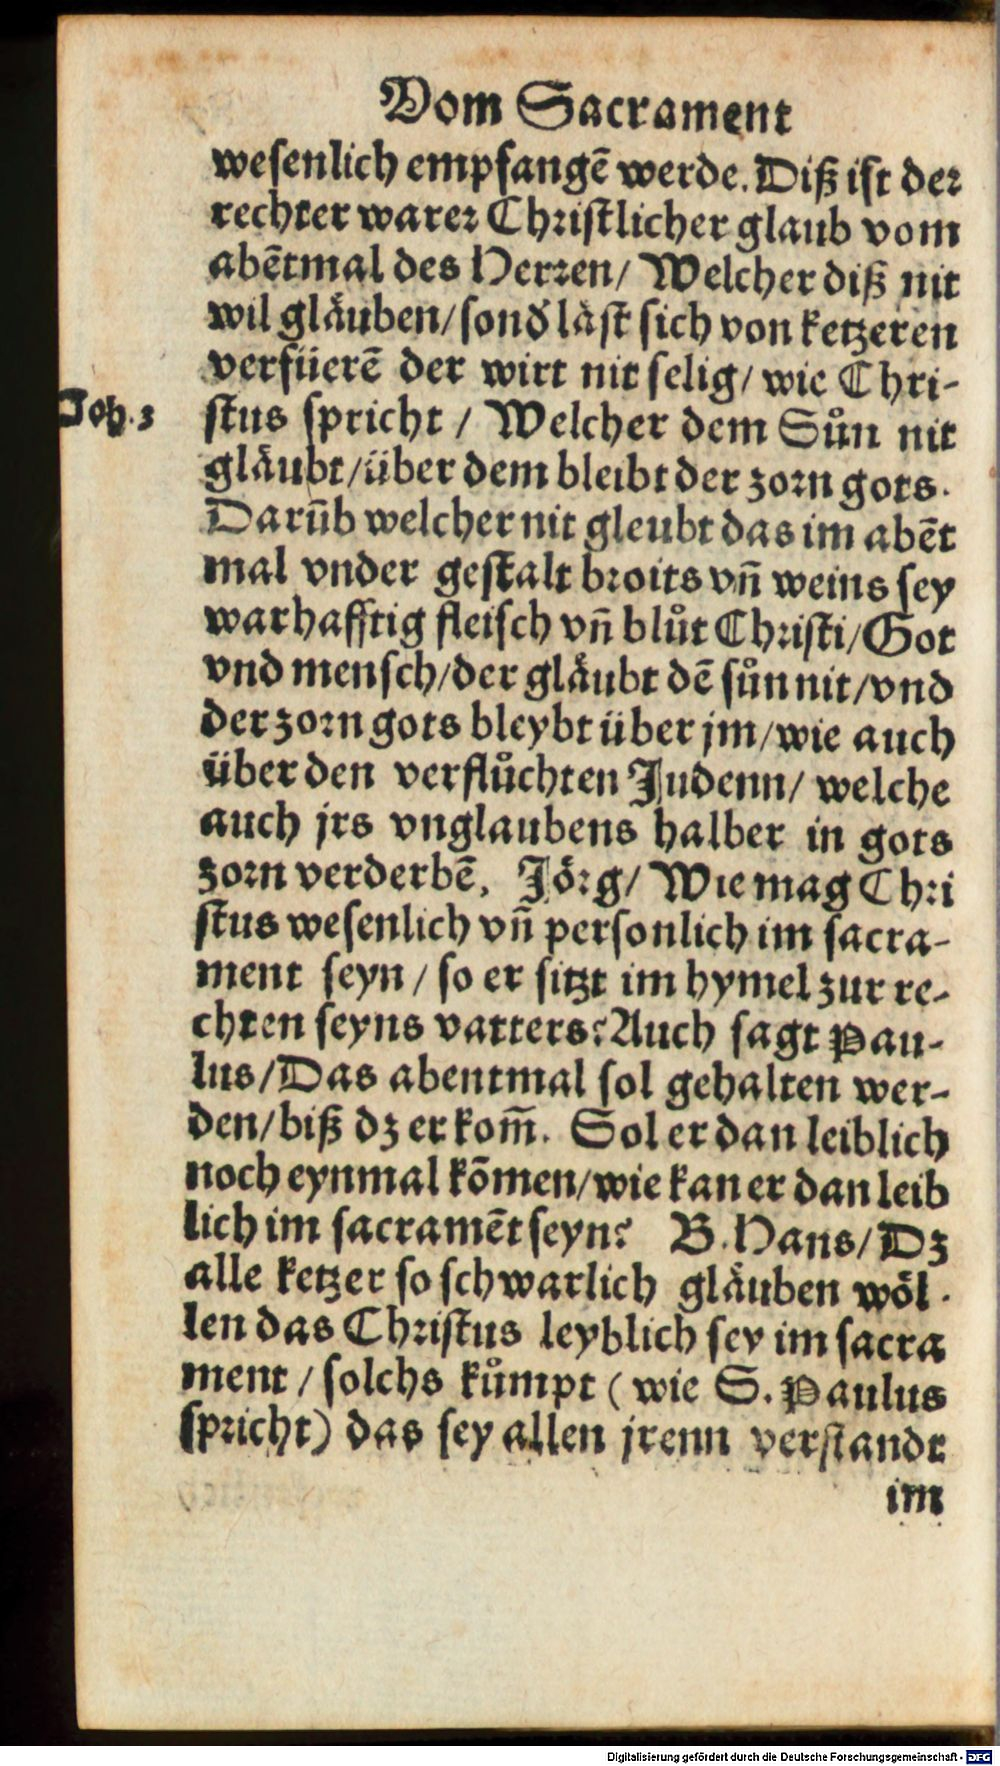 Vom Sacrament
wesenlich empfangē werde. Diß ist der
rechter warer Christlicher glaub vom
abētmal des Herren/ Welcher diß nit
wil gläuben/sond̕ läst sich von ketzeren
verfüerē der wirt nit selig/ wie Chri-
Joh.3
stus spricht / Welcher dem Sůn nit
gläubt/über dem bleibt der zorn gots.
Darūb welcher nit gleubt das im abēt
mal vnder gestalt broits vñ weins sey
warhafftig fleisch vñ blůt Christi/Got
vnd mensch/der gläubt dē sůn nit/vnd
der zorn gots bleybt über jm/wie auch
über den verflůchten Judenn/ welche
auch jrs vnglaubens halber in gots
zorn verderbē. Jörg/ Wie mag Chri
stus wesenlich vñ personlich im sacra-
ment seyn / so er sitzt im hymel zur re-
chten seyns vatters? Auch sagt Pau-
lus/Das abentmal sol gehalten wer-
den/biß dz er kom̄. Sol er dan leiblich
noch eynmal kōmen/wie kan er dan leib
lich im sacramēt seyn? B. Hans/ Dz
alle ketzer so schwarlich gläuben wöl-
len das Christus leyblich sey im sacra
ment / solchs kůmpt ( wie S. Paulus
spricht) das sey allen jrenn verstandt
im
Digitalisierung gefördert durch die Deutsche Forschungsgemeinschaft - DFG